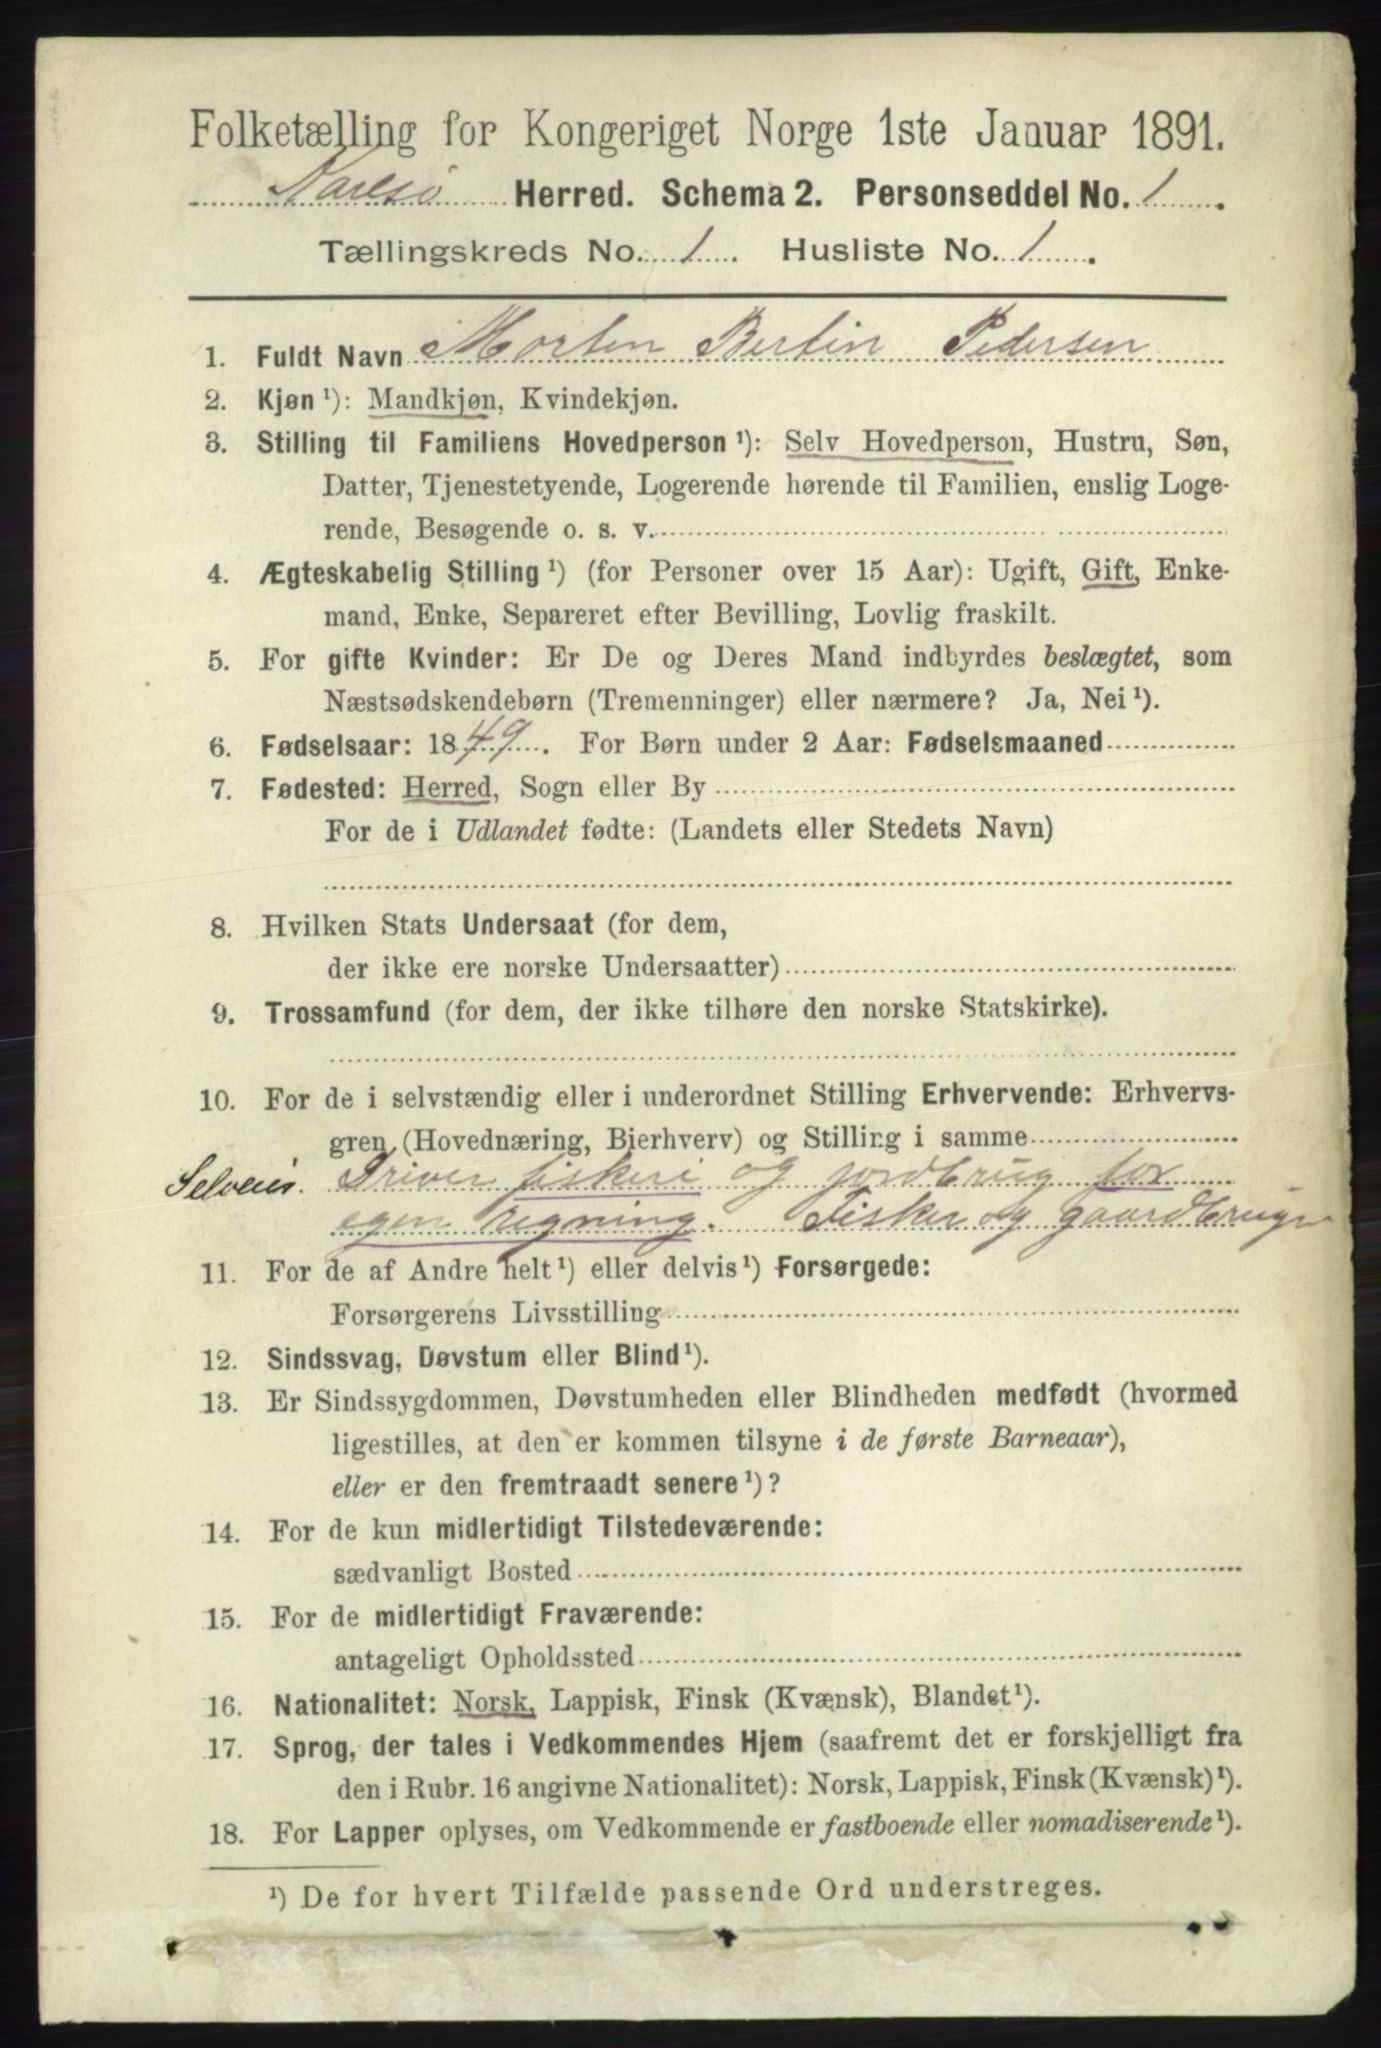 Folketælling for Kongeriget Norge 1ste Januar 1891.
Karlsø Herred. Schema 2. Personseddel No. 1.
Tællingskreds No. 1. Husliste No. 1.
1. Fuldt Navn Morten Bertin Pedersen
2. Kjøn¹): Mandkjøn, Kvindekjøn.
3. Stilling til Familiens Hovedperson¹): Selv Hovedperson, Hustru, Søn,
Datter, Tjenestetyende, Logerende hørende til Familien, enslig Loge-
rende, Besøgende o. s. v.
4. Ægteskabelig Stilling¹) (for Personer over 15 Aar): Ugift, Gift, Enke-
mand, Enke, Separeret efter Bevilling, Lovlig fraskilt.
5. For gifte Kvinder: Er De og Deres Mand indbyrdes beslægtet, som
Næstsødskendebørn (Tremenninger) eller nærmere? Ja, Nei¹).
6. Fødselsaar: 1849. For Børn under 2 Aar: Fødselsmaaned
7. Fødested: Herred, Sogn eller By
For de i Udlandet fødte: (Landets eller Stedets Navn)
8. Hvilken Stats Undersaat (for dem,
der ikke ere norske Undersaatter)
9. Trossamfund (for dem, der ikke tilhøre den norske Statskirke).
10. For de i selvstændig eller i underordnet Stilling Erhvervende: Erhvervs-
gren (Hovednæring, Bierhverv) og Stilling i samme
Selveier. Driver fiskeri og jordbrug for
egen regning. Fisker og gaardbruger
11. For de af Andre helt¹) eller delvis¹) Forsørgede:
Forsørgerens Livsstilling
12. Sindssvag, Døvstum eller Blind¹).
13. Er Sindssygdommen, Døvstumheden eller Blindheden medfødt (hvormed
ligestilles, at den er kommen tilsyne i de første Barneaar),
eller er den fremtraadt senere¹)?
14. For de kun midlertidigt Tilstedeværende:
sædvanligt Bosted
15. For de midlertidigt Fraværende:
antageligt Opholdssted
16. Nationalitet: Norsk, Lappisk, Finsk (Kvænsk), Blandet¹).
17. Sprog, der tales i Vedkommendes Hjem (saafremt det er forskjelligt fra
den i Rubr. 16 angivne Nationalitet): Norsk, Lappisk, Finsk (Kvænsk)¹).
18. For Lapper oplyses, om Vedkommende er fastboende eller nomadiserende¹).
¹) De for hvert Tilfælde passende Ord understreges.